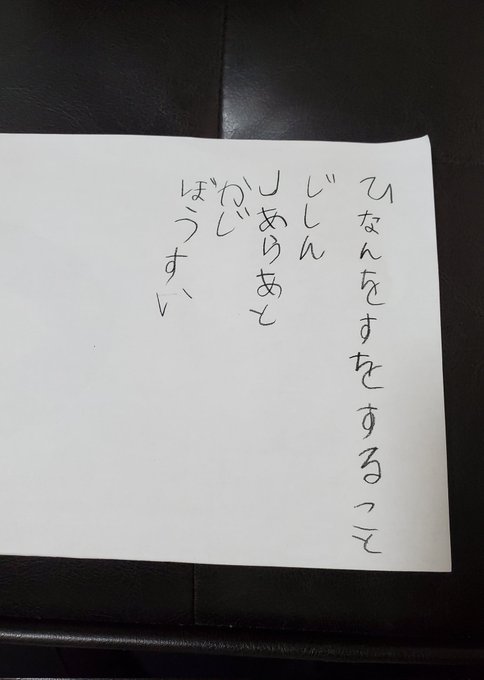 ひなんをすをすること
じしん
Jあらあと
かじ
ぼうすい